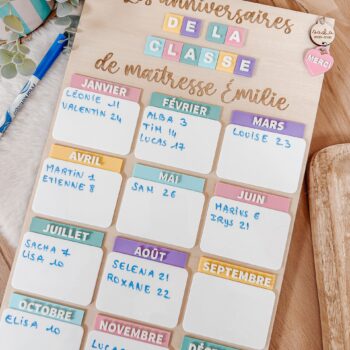 Les anniversaires
DE LA
CLASSE
de maîtresse Émilie
MERCI
JANVIER
LÉONIE 11
VALENTIN 24
FÉVRIER
ALBA 3
TIM 14
LUCAS 17
MARS
LOUISE 23
AVRIL
MARTIN 1
ETIENNE 8
MAI
SAM 26
JUIN
MARIUS 6
IRYS 21
JUILLET
SACHA 7
LISA 10
AOÛT
SELENA 21
ROXANE 22
SEPTEMBRE
OCTOBRE
ELISA 10
NOVEMBRE
LUCAS